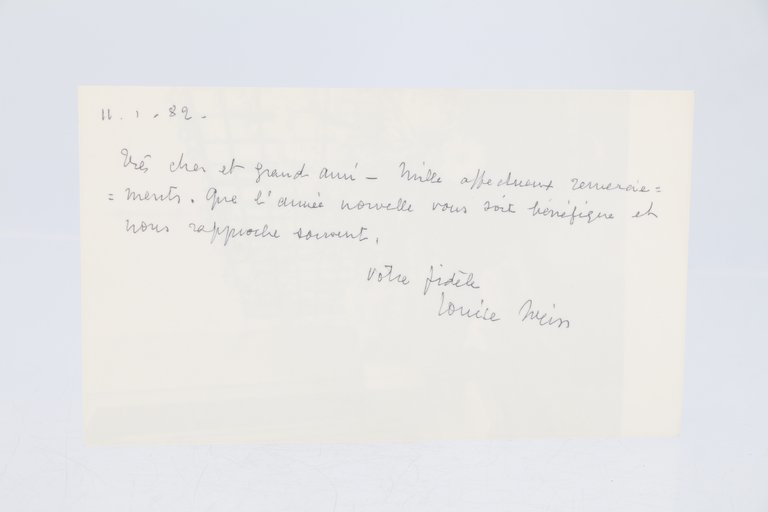 11.1.82.
Très cher et grand ami — Mille affectueux remercie=
=ments. Que l'année nouvelle vous soit bénéfique et
nous rapproche souvent.
votre fidèle
Louise Weiss